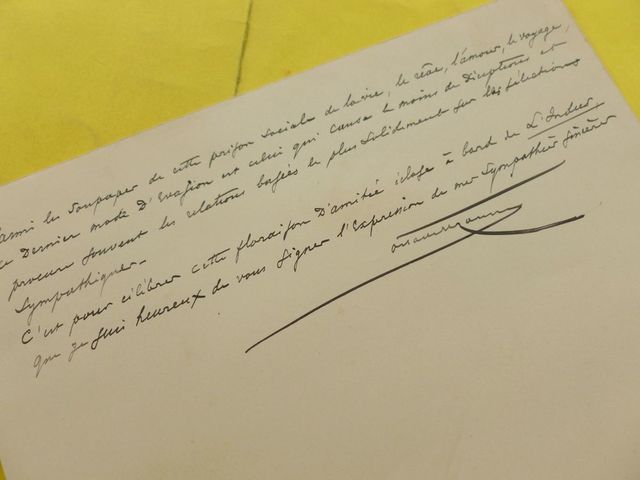 Parmi les soupapes de cette prison sociale de la vie, le rêve, l'amour, le voyage,
ce dernier mode d'évasion est celui qui cause le moins de déceptions et,
procure souvent les relations basées le plus solidement sur les sélections
sympathiques.
C'est pour célébrer cette floraison d'amitié éclose à bord de L'Indus
que je suis heureux de vous signer l'expression de mes sympathies sincères